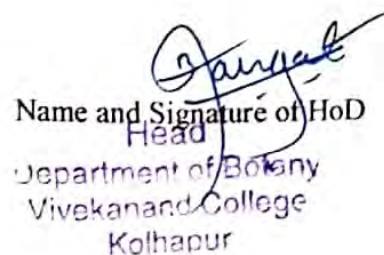 Name and Signature of HoD
Head
Department of Botany
Vivekanand College
Kolhapur